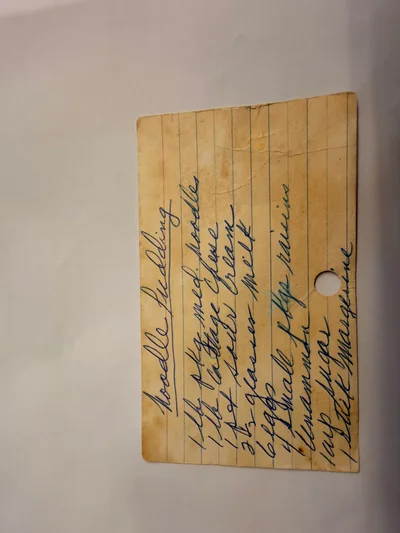 Noodle Pudding
1 lb pkg med noodles
1 lb cottage chese
1 pt sour cream
2½ glasses milk
6 eggs
4 small pkg raisins
Cinnamon
1 cup sugar
1 stick margerine